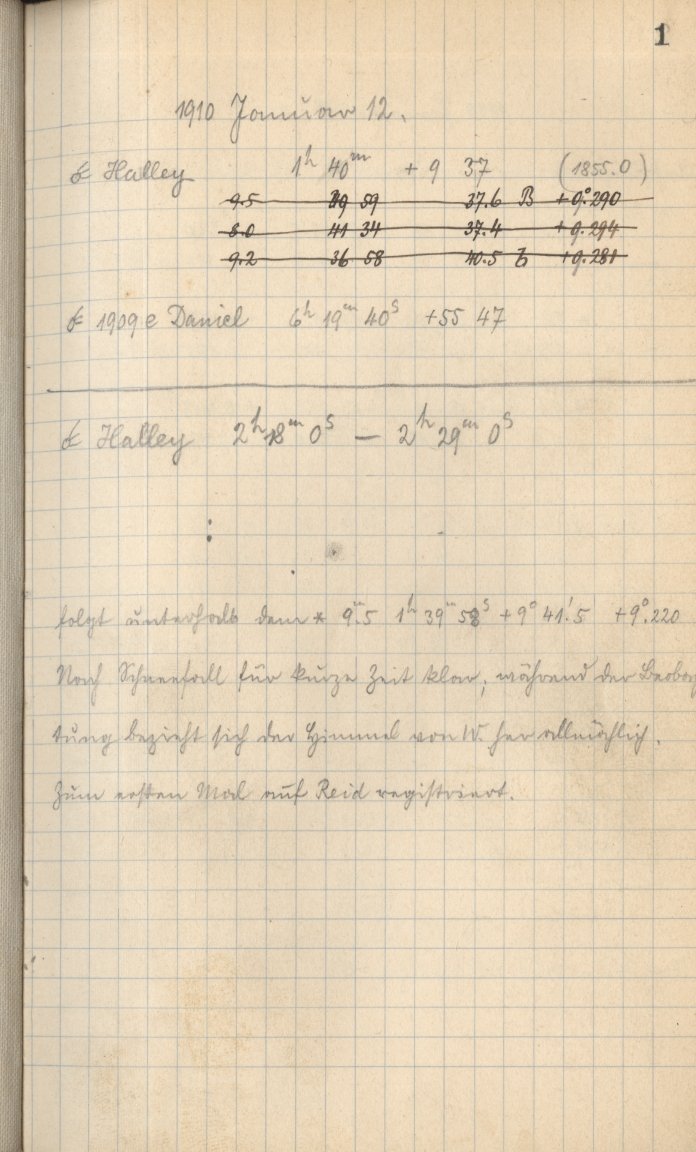 1
1910 Januar 12.
☄ Halley 1ʰ 40ᵐ + 9 37 (1855.0)
9.5 39 59 37.6 B +9°.290
8.0 41 34 37.4 +9.294
9.2 36 58 40.5 +9.281
☄ 1909 e Daniel 6ʰ 19ᵐ 40ˢ +55 47
☄ Halley 2ʰ 18ᵐ 0ˢ — 2ʰ 29ᵐ 0ˢ
:
folgt unterhalb dem * 9ᵐ.5 1ʰ 39ᵐ 58ˢ +9° 41'.5 +9°.220
Nach Schneefall für kurze Zeit klar, während der Beobach
tung bezieht sich der Himmel von W. her allmählich.
Zum ersten Mal auf Reid registriert.